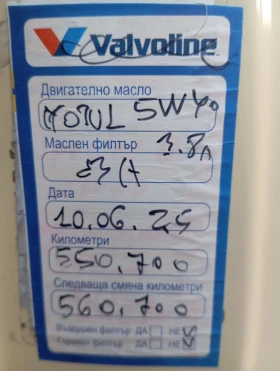 Valvoline
Двигателно масло
MOTUL 5W40
Маслен филтър 3.8л
Дата
10.06.25
Километри
550.700
Следваща смяна километри
560.700
Въздушен филтър ДА НЕ
Горивен филтър ДА НЕ